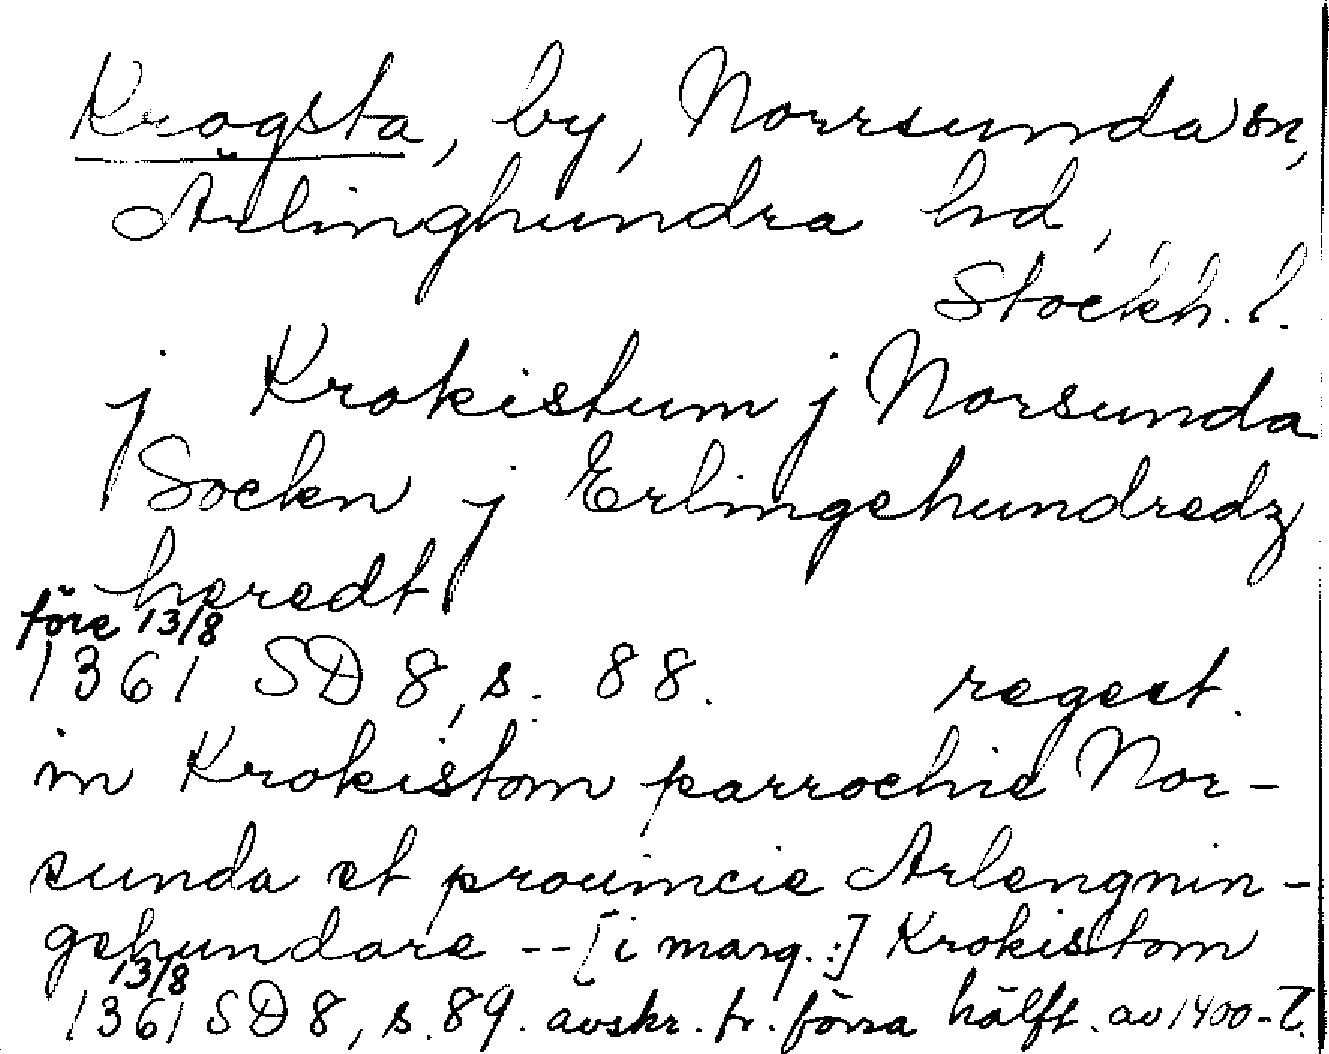 Krogsta, by, Norrsunda sn,
Ärlinghundra hd,
Stockh. l.
j Krokistum j Norsunda
Sockn j Erlingehundredz
heredt
före 13/8
1361 SD 8, s. 88. regest.
in Krokistom parrochie Nor-
sunda et prouincie Arlengnin-
gehundare -- [i marg.:] Krokistom
13/8
1361 SD 8, s. 89. avskr. fr. förra hälft. av 1400-t.